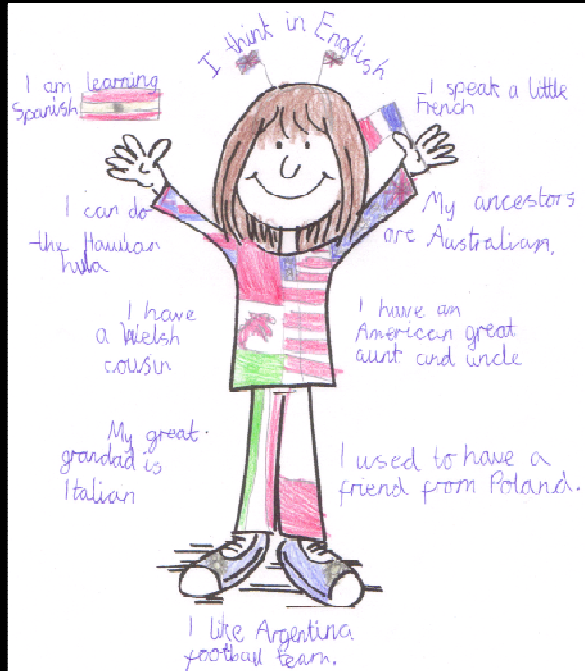 I think in English
I am learning
Spanish
I speak a little
French
I can do
the Hawiian
hula
My ancestors
are Australian.
I have
a Welsh
cousin
I have an
American great
aunt and uncle
My great-
grandad is
Italian
I used to have a
friend from Poland.
I like Argentina
football team.